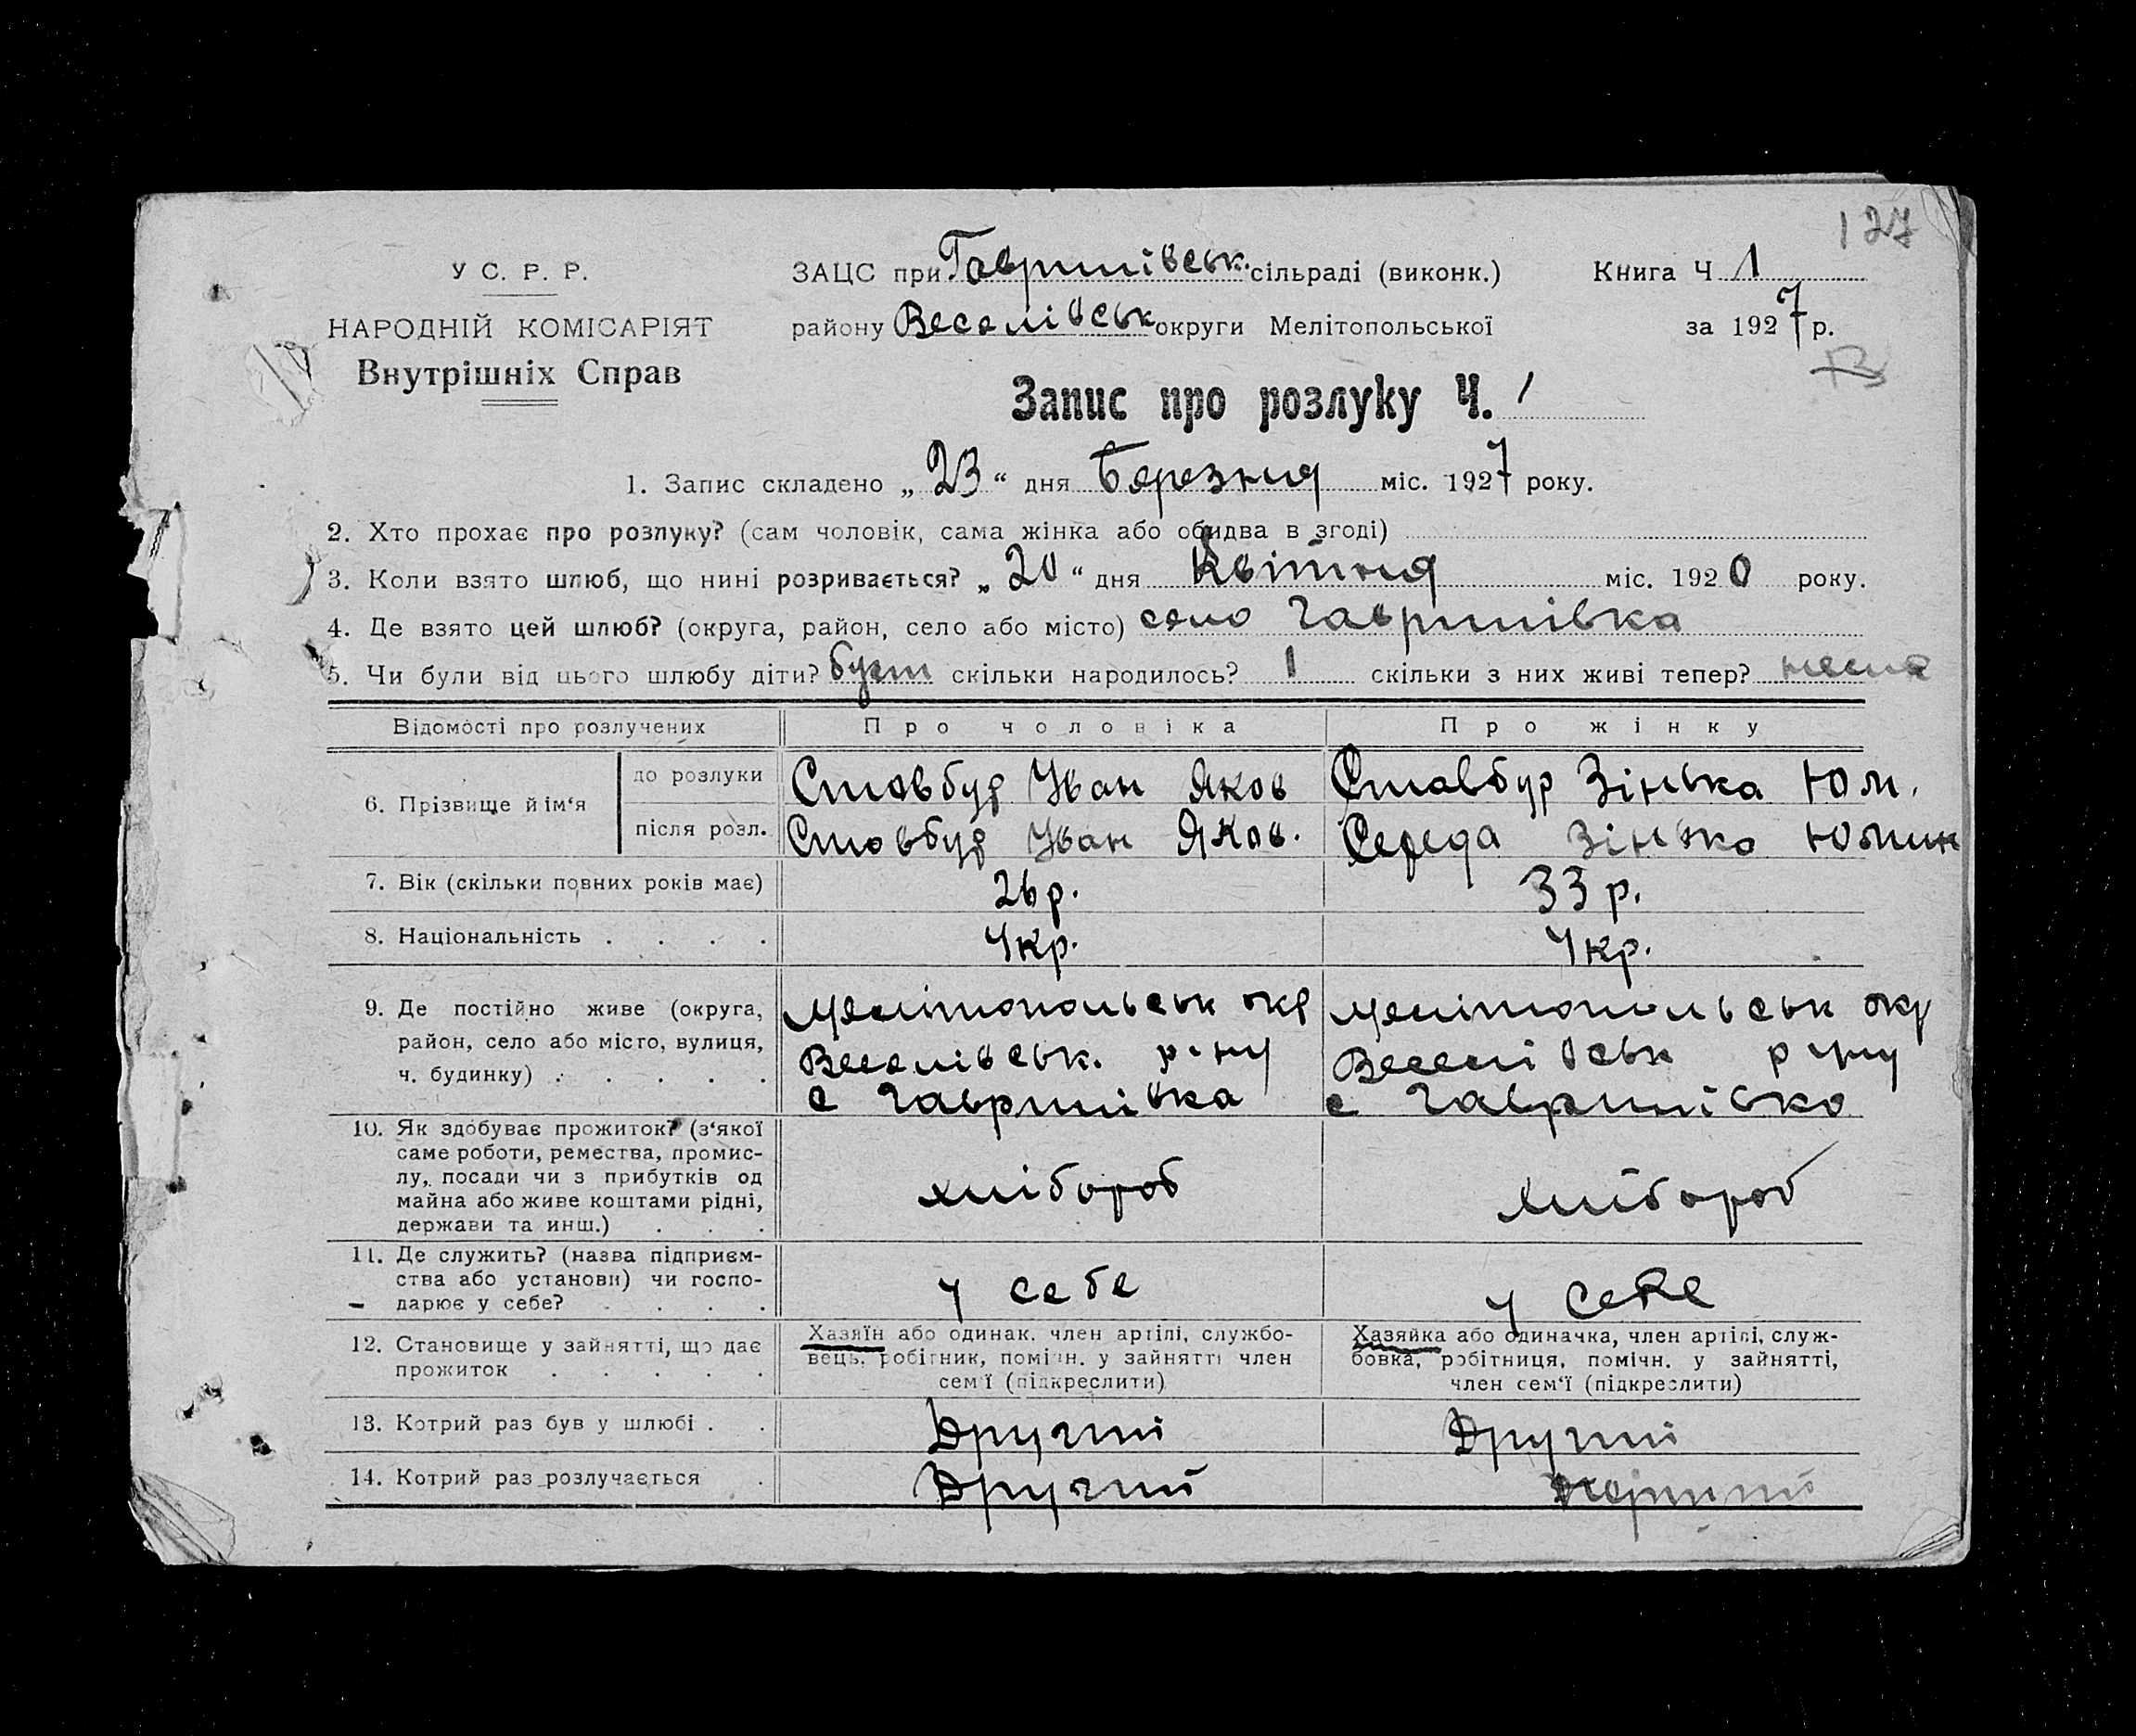 127
У С. Р. Р.
НАРОДНІЙ КОМІСАРІЯТ
Внутрішніх Справ
ЗАЦС при Гаврилівськ. сільраді (виконк.)
Книга Ч 1
району Веселівськ округи Мелітопольської
за 1927 р.
Запис про розлуку Ч. 1
1. Запис складено „23“ дня Березня міс. 1927 року.
2. Хто прохає про розлуку? (сам чоловік, сама жінка або обидва в згоді)
3. Коли взято шлюб, що нині розривається? „20“ дня Квітня міс. 1920 року.
4. Де взято цей шлюб? (округа, район, село або місто) село Гаврилівка
5. Чи були від цього шлюбу діти? скільки народилось? 1 скільки з них живі тепер?
Відомості про розлучених Про чоловіка Про жінку
6. Прізвище й ім‘я
до розлуки Стовбур Іван Яков Стовбур Зінька Юм.
після розл. Стовбур Іван Яков. Середа Зінька
7. Вік (скільки повних років має) 26 р. 33 р.
8. Національність . . . . Укр. Укр.
9. Де постійно живе (округа, Мелітопольськ окр Мелітопольськ окр
район, село або місто, вулиця, Веселівськ. р-ну Веселівськ р-ну
ч. будинку) . . . . . с Гаврилівка с Гаврилівка
10. Як здобуває прожиток? (з‘якої
саме роботи, ремества, промис-
лу, посади чи з прибутків од
майна або живе коштами рідні,
держави та инш.) . . .
хлібороб хлібороб
11. Де служить? (назва підприєм-
ства або установи) чи госпо-
дарює у себе? . . . .
у себе у себе
12. Становище у зайнятті, що дає
прожиток . . . . .
Хазяїн або одинак. член артілі, службо-
вець, робітник, помічн. у зайнятті член
сем‘ї (підкреслити)
Хазяйка або одиначка, член артілі, служ-
бовка, робітниця, помічн. у зайнятті,
член сем‘ї (підкреслити)
13. Котрий раз був у шлюбі . . Другий Другий
14. Котрий раз розлучається . Другий